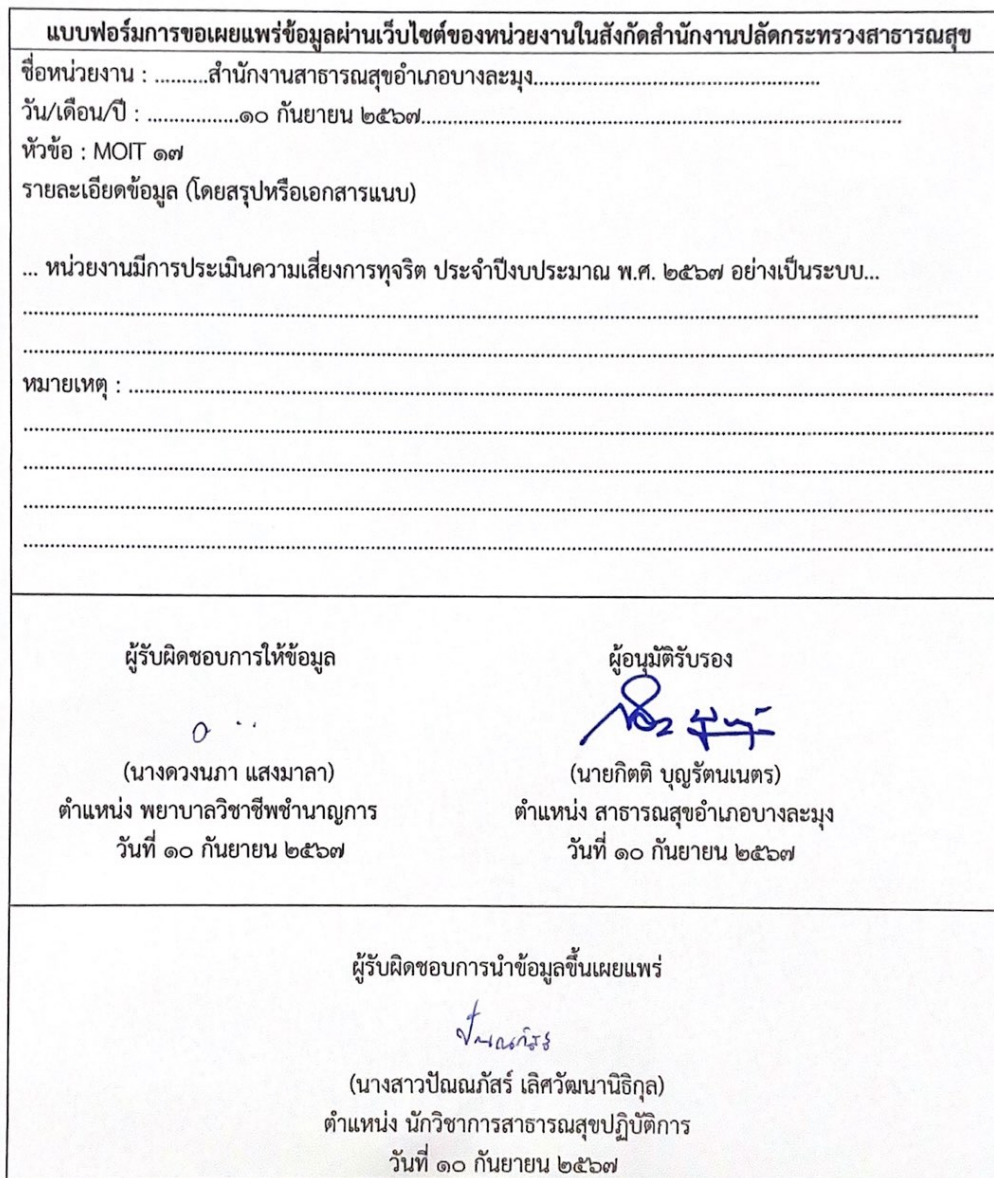 แบบฟอร์มการขอเผยแพร่ข้อมูลผ่านเว็บไซต์ของหน่วยงานในสังกัดสำนักงานปลัดกระทรวงสาธารณสุข
ชื่อหน่วยงาน : ..........สำนักงานสาธารณสุขอำเภอบางละมุง.......................................................
วัน/เดือน/ปี : .................๑๐ กันยายน ๒๕๖๗...........................................................................................
หัวข้อ : MOIT ๑๗
รายละเอียดข้อมูล (โดยสรุปหรือเอกสารแนบ)
... หน่วยงานมีการประเมินความเสี่ยงการทุจริต ประจำปีงบประมาณ พ.ศ. ๒๕๖๗ อย่างเป็นระบบ...
หมายเหตุ : ....................................................................................................
ผู้รับผิดชอบการให้ข้อมูล ผู้อนุมัติรับรอง
(นางดวงนภา แสงมาลา) (นายกิตติ บุญรัตนเนตร)
ตำแหน่ง พยาบาลวิชาชีพชำนาญการ ตำแหน่ง สาธารณสุขอำเภอบางละมุง
วันที่ ๑๐ กันยายน ๒๕๖๗ วันที่ ๑๐ กันยายน ๒๕๖๗
ผู้รับผิดชอบการนำข้อมูลขึ้นเผยแพร่
ปัณณภัสร์
(นางสาวปัณณภัสร์ เลิศวัฒนานิธิกุล)
ตำแหน่ง นักวิชาการสาธารณสุขปฏิบัติการ
วันที่ ๑๐ กันยายน ๒๕๖๗